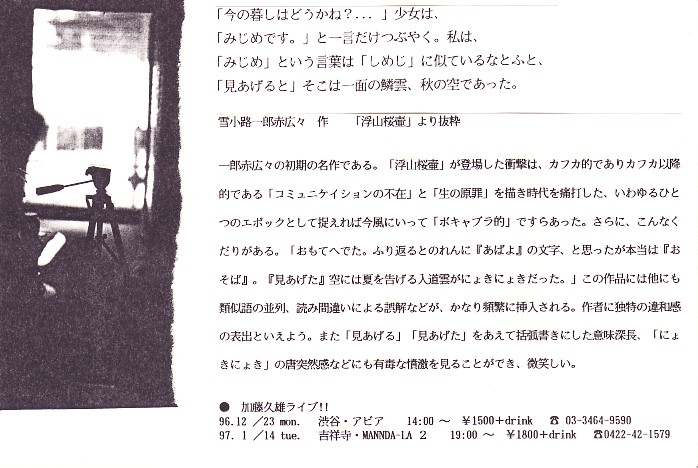 「今の暮しはどうかね？... 」少女は、
「みじめです。」と一言だけつぶやく。私は、
「みじめ」という言葉は「しめじ」に似ているなとふと、
「見あげると」そこは一面の鱗雲、秋の空であった。
雪小路一郎赤広々　作　　「浮山桜壷」より抜粋
一郎赤広々の初期の名作である。「浮山桜壷」が登場した衝撃は、カフカ的でありカフカ以降
的である「コミュニケイションの不在」と「生の原罪」を描き時代を痛打した、いわゆるひと
つのエポックとして捉えれば今風にいって「ボキャブラ的」ですらあった。さらに、こんなく
だりがある。「おもてへでた。ふり返るとのれんに『あばよ』の文字、と思ったが本当は『お
そば』。『見あげた』空には夏を告げる入道雲がにょきにょきだった。」この作品には他にも
類似語の並列、読み間違いによる誤解などが、かなり頻繁に挿入される。作者に独特の違和感
の表出といえよう。また「見あげる」「見あげた」をあえて括弧書きにした意味深長、「にょ
きにょき」の唐突然感などにも有毒な憤激を見ることができ、微笑しい。
●　加藤久雄ライブ!!
96.12 ／23 mon.　渋谷・アピア　　14:00 ～　￥1500＋drink　☎ 03-3464-9590
97. 1 ／14 tue.　吉祥寺・MANNDA-LA ２　　19:00 ～　￥1800＋drink　☎0422-42-1579